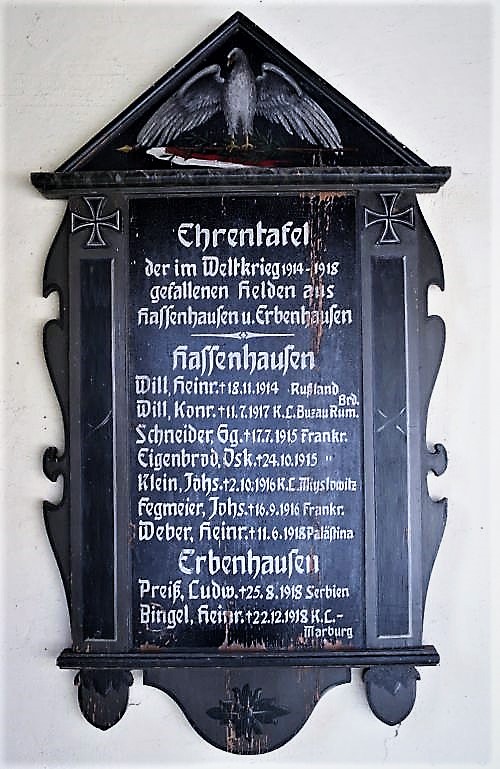 Ehrentafel
der im Weltkrieg 1914-1918
gefallenen Helden aus
Hassenhausen u. Erbenhausen
Hassenhausen
Will, Heinr. † 18.11.1914 Rußland
Will, Konr. † 11.7.1917 K.L. Buzau Rum. Brd.
Schneider, Gg. † 17.7.1915 Frankr.
Eigenbrod, Osk. † 24.10.1915 "
Klein, Johs. † 2.10.1916 K.L. Myslowitz
Fegmeier, Johs. † 16.9.1916 Frankr.
Weber, Heinr. † 11.6.1918 Palästina
Erbenhausen
Preiß, Ludw. † 25.8.1918 Serbien
Bingel, Heinr. † 22.12.1918 K.L.-
Marburg